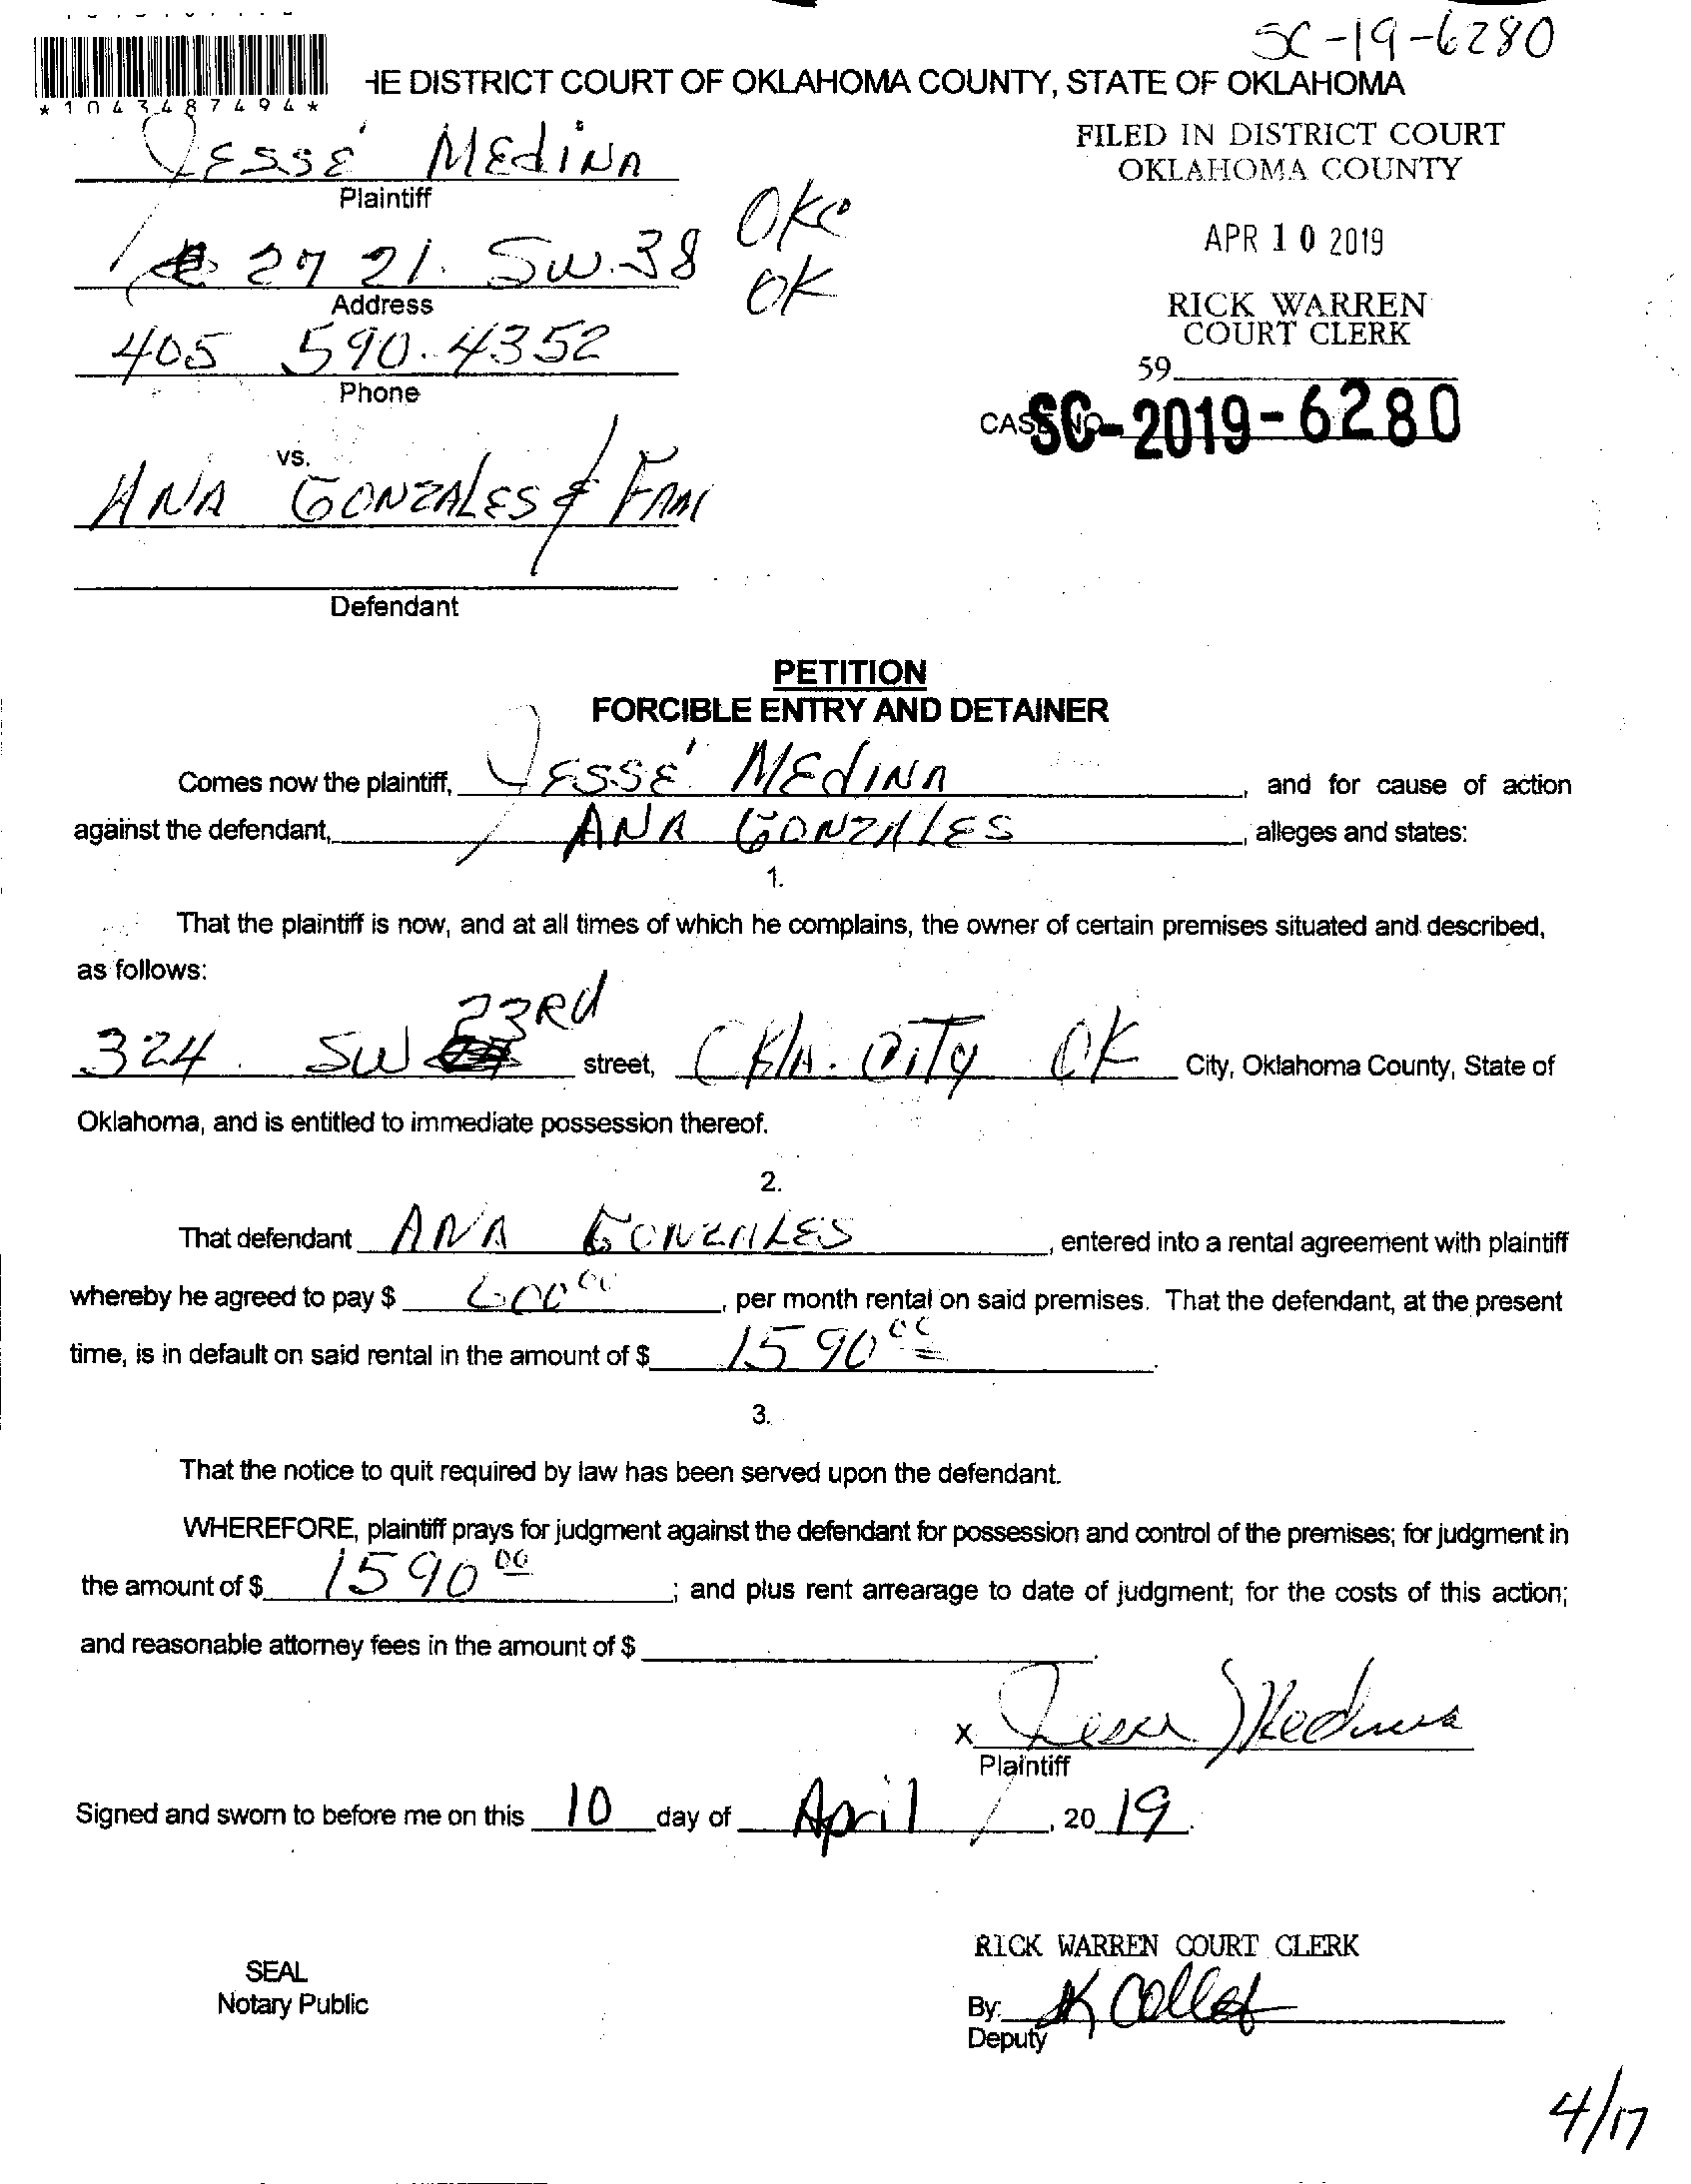 SC-19-6280
HE DISTRICT COURT OF OKLAHOMA COUNTY, STATE OF OKLAHOMA
*1043487494*
JESSE MEDINA
Plaintiff
FILED IN DISTRICT COURT
OKLAHOMA COUNTY
2721. SW.38 OKC
OK
Address
APR 10 2019
405 590.4352
Phone
RICK WARREN
COURT CLERK
59
CASE NO. SC-2019-6280
vs.
ANA GONZALES & FAM
Defendant
PETITION
FORCIBLE ENTRY AND DETAINER
Comes now the plaintiff, JESSE MEDINA, and for cause of action
against the defendant, ANA GONZALES, alleges and states:
1.
That the plaintiff is now, and at all times of which he complains, the owner of certain premises situated and described,
as follows:
324 SW 23RD street, OKLA. CITY OK City, Oklahoma County, State of
Oklahoma, and is entitled to immediate possession thereof.
2.
That defendant ANA GONZALES, entered into a rental agreement with plaintiff
whereby he agreed to pay $ 600 00, per month rental on said premises. That the defendant, at the present
time, is in default on said rental in the amount of $ 1590 00.
3.
That the notice to quit required by law has been served upon the defendant.
WHEREFORE, plaintiff prays for judgment against the defendant for possession and control of the premises; for judgment in
the amount of $ 1590 00; and plus rent arrearage to date of judgment; for the costs of this action;
and reasonable attorney fees in the amount of $.
X Jesse Medina
Plaintiff
Signed and sworn to before me on this 10 day of April, 20 19.
RICK WARREN COURT CLERK
SEAL
Notary Public
By: K
Deputy
4/17